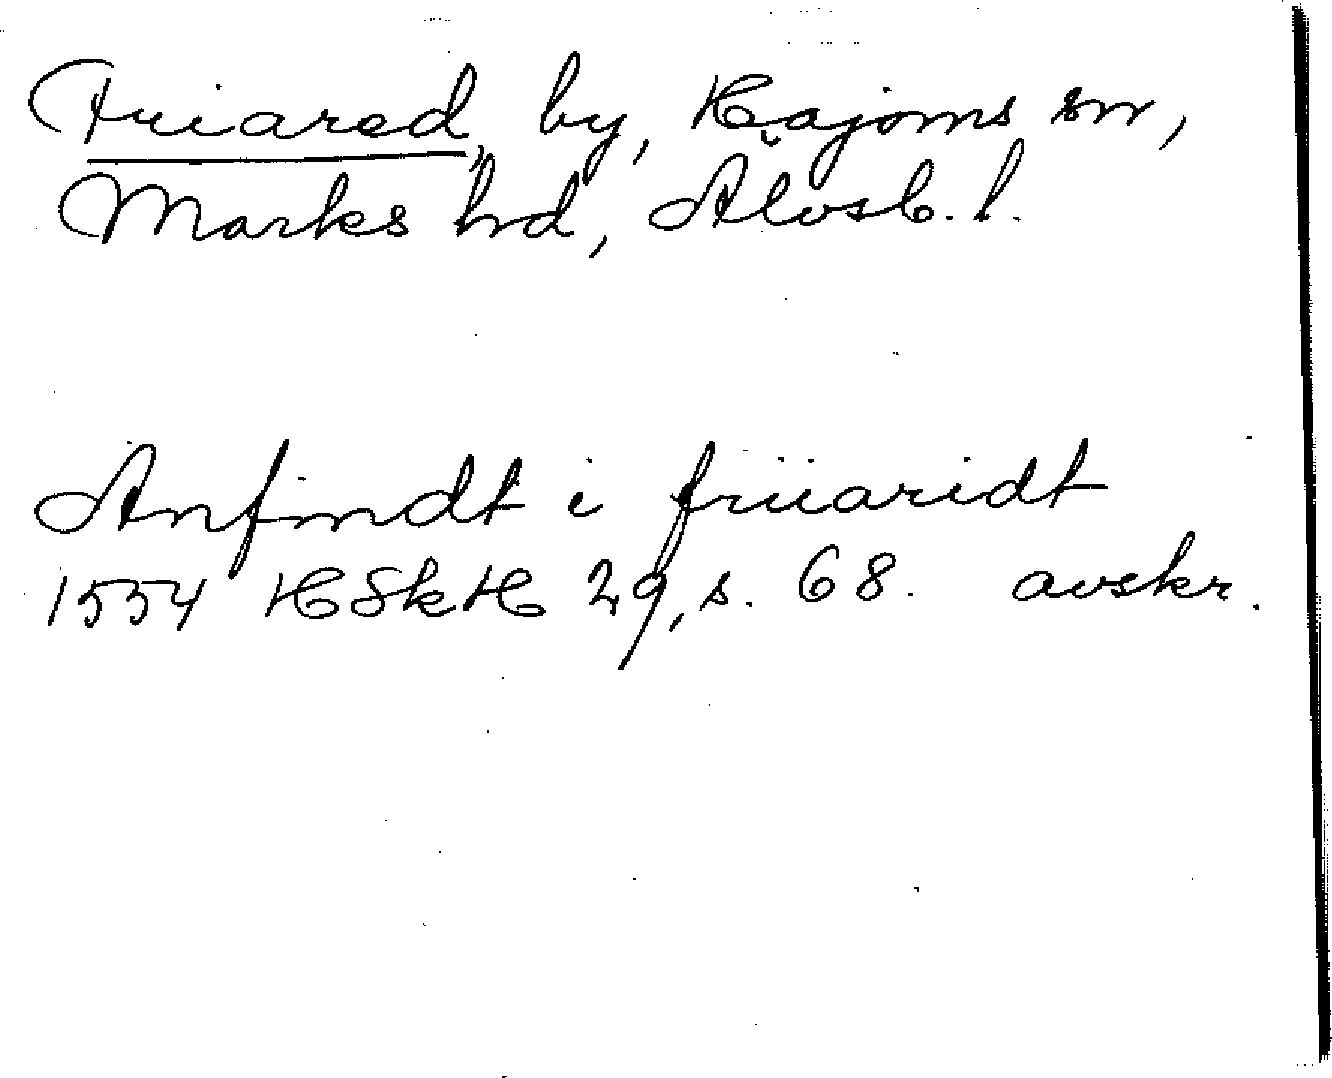 Friared, by, Hajoms sn,
Marks hd, Älvsb. l.
Anfindt i friiaridt
1554 HSkH 29, s. 68. avskr.